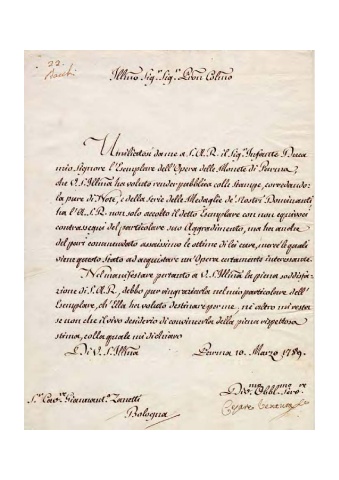 22.
Illmo Sig.r Sig.r Pron Colmo
Umiliatosi da me a S.A.R. il Sig.r Infante Duca
mio Signore l'Esemplare dell'Opera delle Monete di Parma,
che V.S. Illma ha voluto render pubblica colle Stampe, corredando-
la pure di Note, e della Serie delle Medaglie de' Nostri Dominanti;
ha l'A.S.R. non solo accolto il detto Esemplare con non equivoci
contrasegni del particolare suo Aggradimento, ma ha anche
del pari commendato assaissimo le ottime di lei cure, mercè le quali
viene questo Stato ad acquistare un'Opera certamente interessante.
Nel manifestare pertanto a V.S. Illma la piena soddisfa-
zione di S.A.R., debbo pur ringraziarla nel mio particolare dell'
Esemplare, ch'Ella ha voluto destinare per me, nè altro mi resta
se non che il vivo desiderio di convincerla della piena rispettosa
stima, colla quale mi dichiaro
Di V.S. Illma
Parma 10. Marzo 1789.
Sr. Cav.re Giannant.o Zanetti
Bologna
Dvo.mo Obbl.mo Serv.re
Cesare Ventura